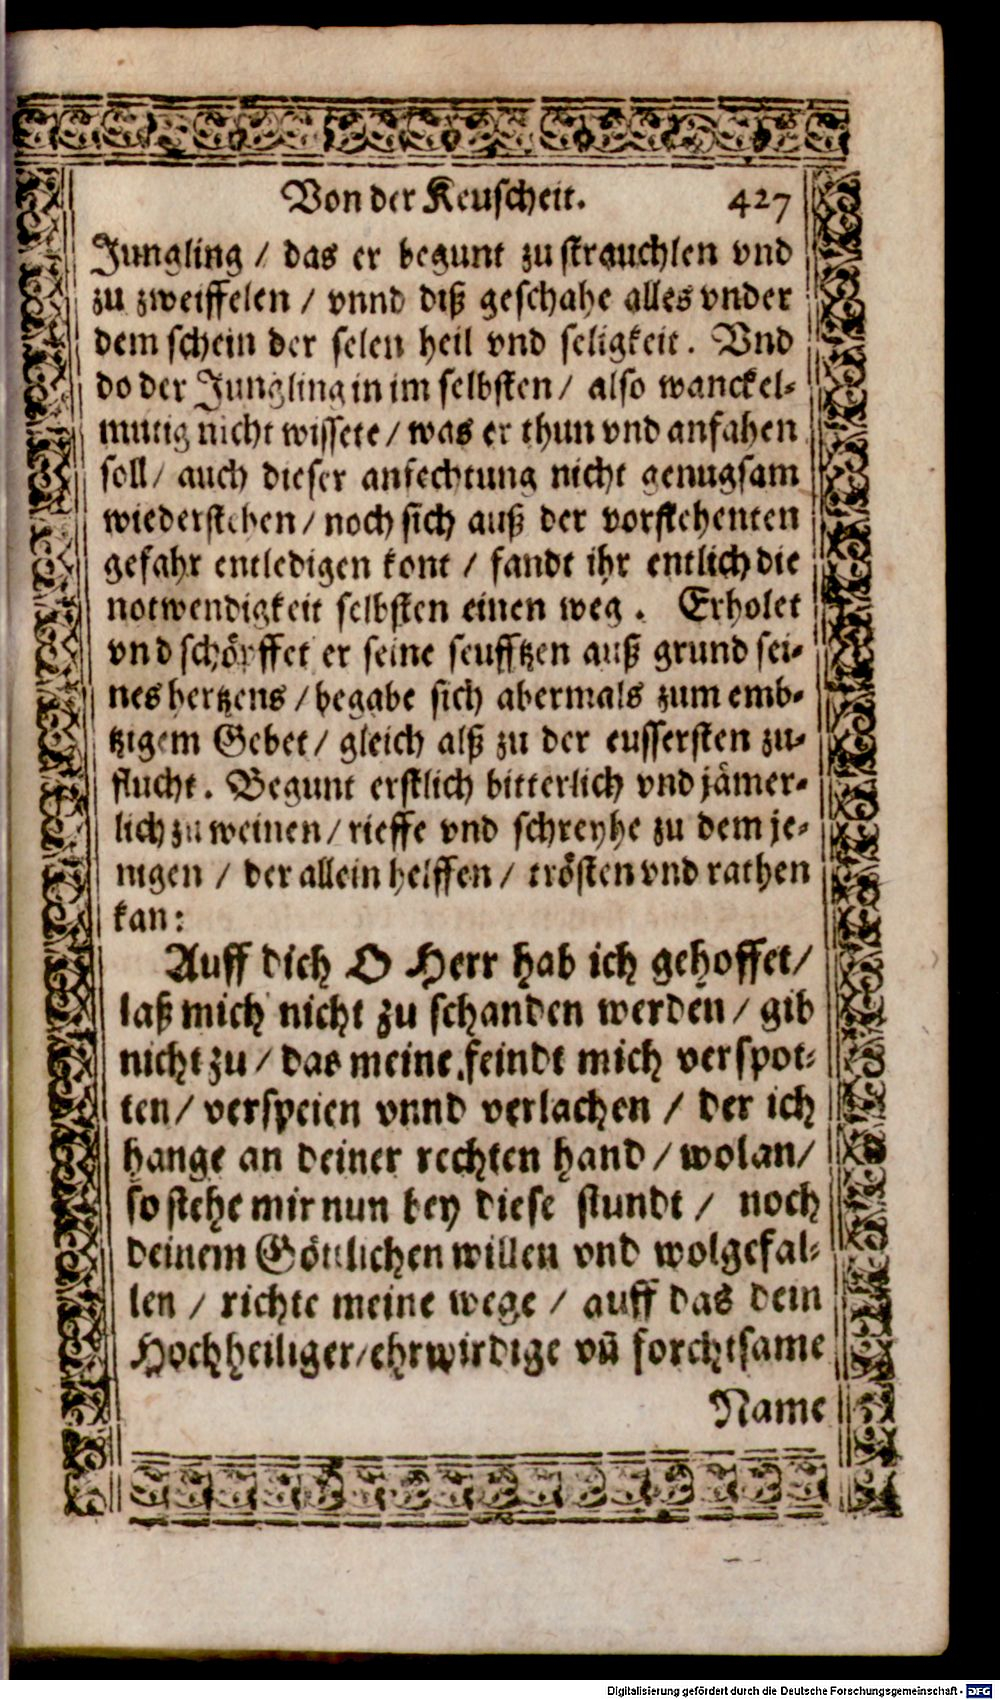 Von der Keuscheit. 427
Jungling / das er begunt zu strauchlen vnd
zu zweiffelen / vnnd diß geschahe alles vnder
dem schein der selen heil vnd seligkeit. Vnd
do der Jungling in im selbsten / also wanckel-
mutig nicht wissete / was er thun vnd anfahen
soll / auch dieser anfechtung nicht genugsam
wiederstehen / noch sich auß der vorstehenten
gefahr entledigen kont / fandt ihr entlich die
notwendigkeit selbsten einen weg. Erholet
vnd schöpffet er seine seufftzen auß grund sei-
nes hertzens / begabe sich abermals zum emb-
tzigem Gebet / gleich alß zu der eussersten zu-
flucht. Begunt erstlich bitterlich vnd jämer-
lich zu weinen / rieffe vnd schreyhe zu dem je-
nigen / der allein helffen / trösten vnd rathen
kan:
Auff dich O Herr hab ich gehoffet /
laß mich nicht zu schanden werden / gib
nicht zu / das meine feindt mich verspot-
ten / verspeien vnnd verlachen / der ich
hange an deiner rechten hand / wolan /
so stehe mir nun bey diese stundt / noch
deinem Göttlichen willen vnd wolgefal-
len / richte meine wege / auff das dein
Hochheiliger / ehrwirdige vñ forchtsame
Name
Digitalisierung gefördert durch die Deutsche Forschungsgemeinschaft - DFG